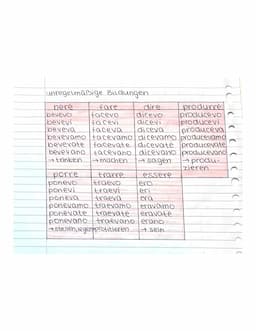 unregelmäßige Bildungen
bere fare dire produrre
bevevo facevo dicevo producevo
bevevi facevi dicevi producevi
beveva faceva diceva produceva
bevevamo facevamo dicevamo producevamo
bevevate facevate dicevate producevate
bevevano facevano dicevano producevano
→ trinken → machen → sagen → produ-
zieren
porre trarre essere
ponevo traevo ero
ponevi traevi eri
poneva traeva era
ponevamo traevamo eravamo
ponevate traevate eravate
ponevano traevano erano
→ sein